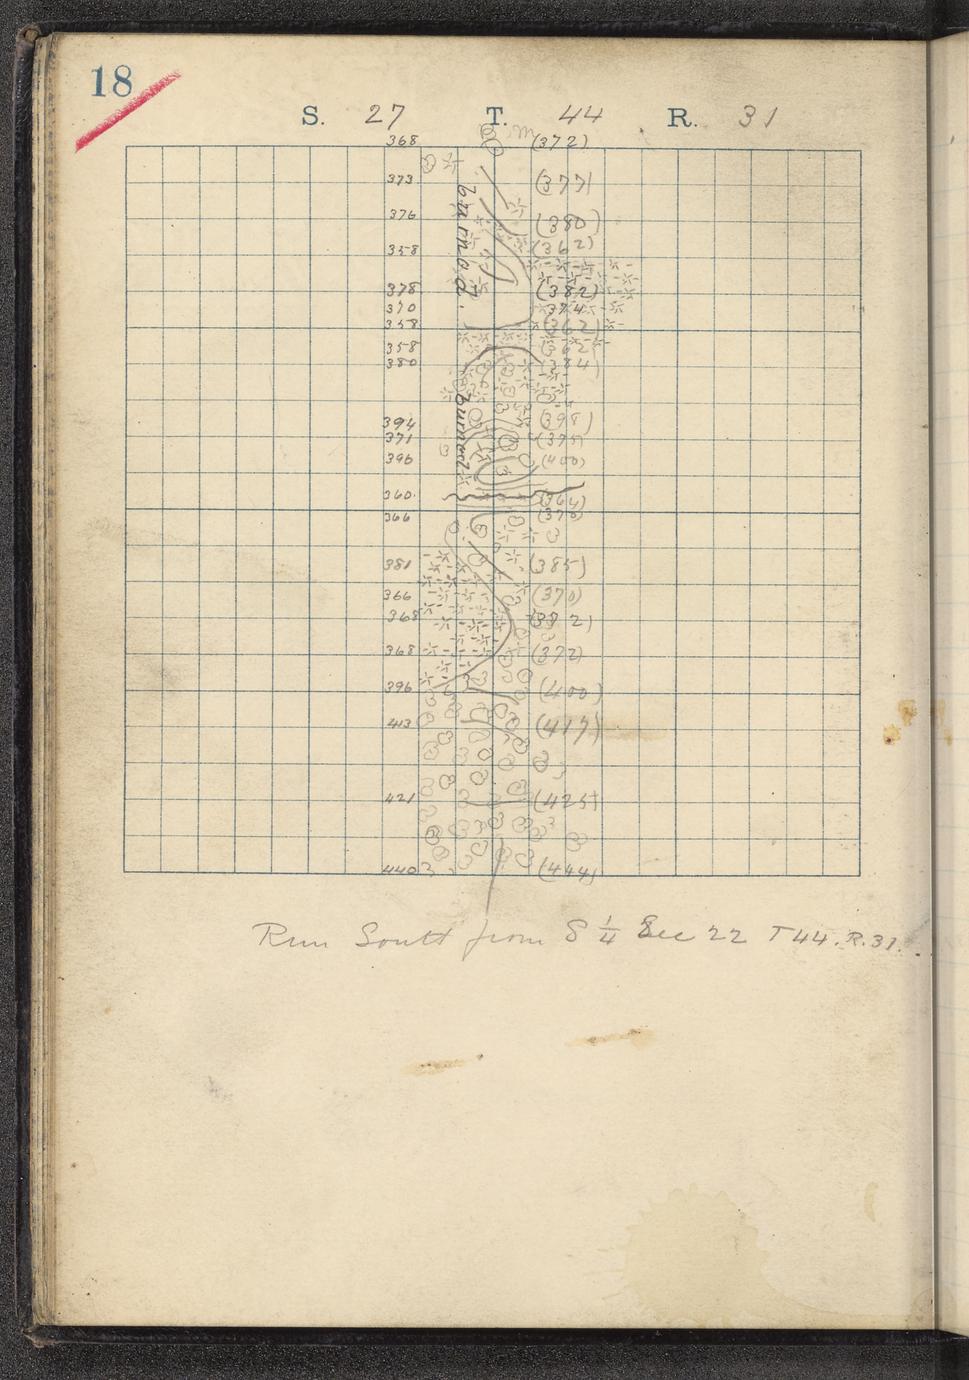 18
S. 27 T. 44 R. 31
368 (372)
373 (377)
376 (380)
358 (362)
378 (382)
370 374
358 (362)
358 (362)
380 (384)
394 (398)
371 (375)
396 (400)
360 (364)
366 (370)
381 (385)
366 (370)
368 (372)
368 (372)
396 (400)
413 (417)
421 (425)
440 (444)
burned
burned
Run South from S 1/4 Sec 22 T 44. R. 31.